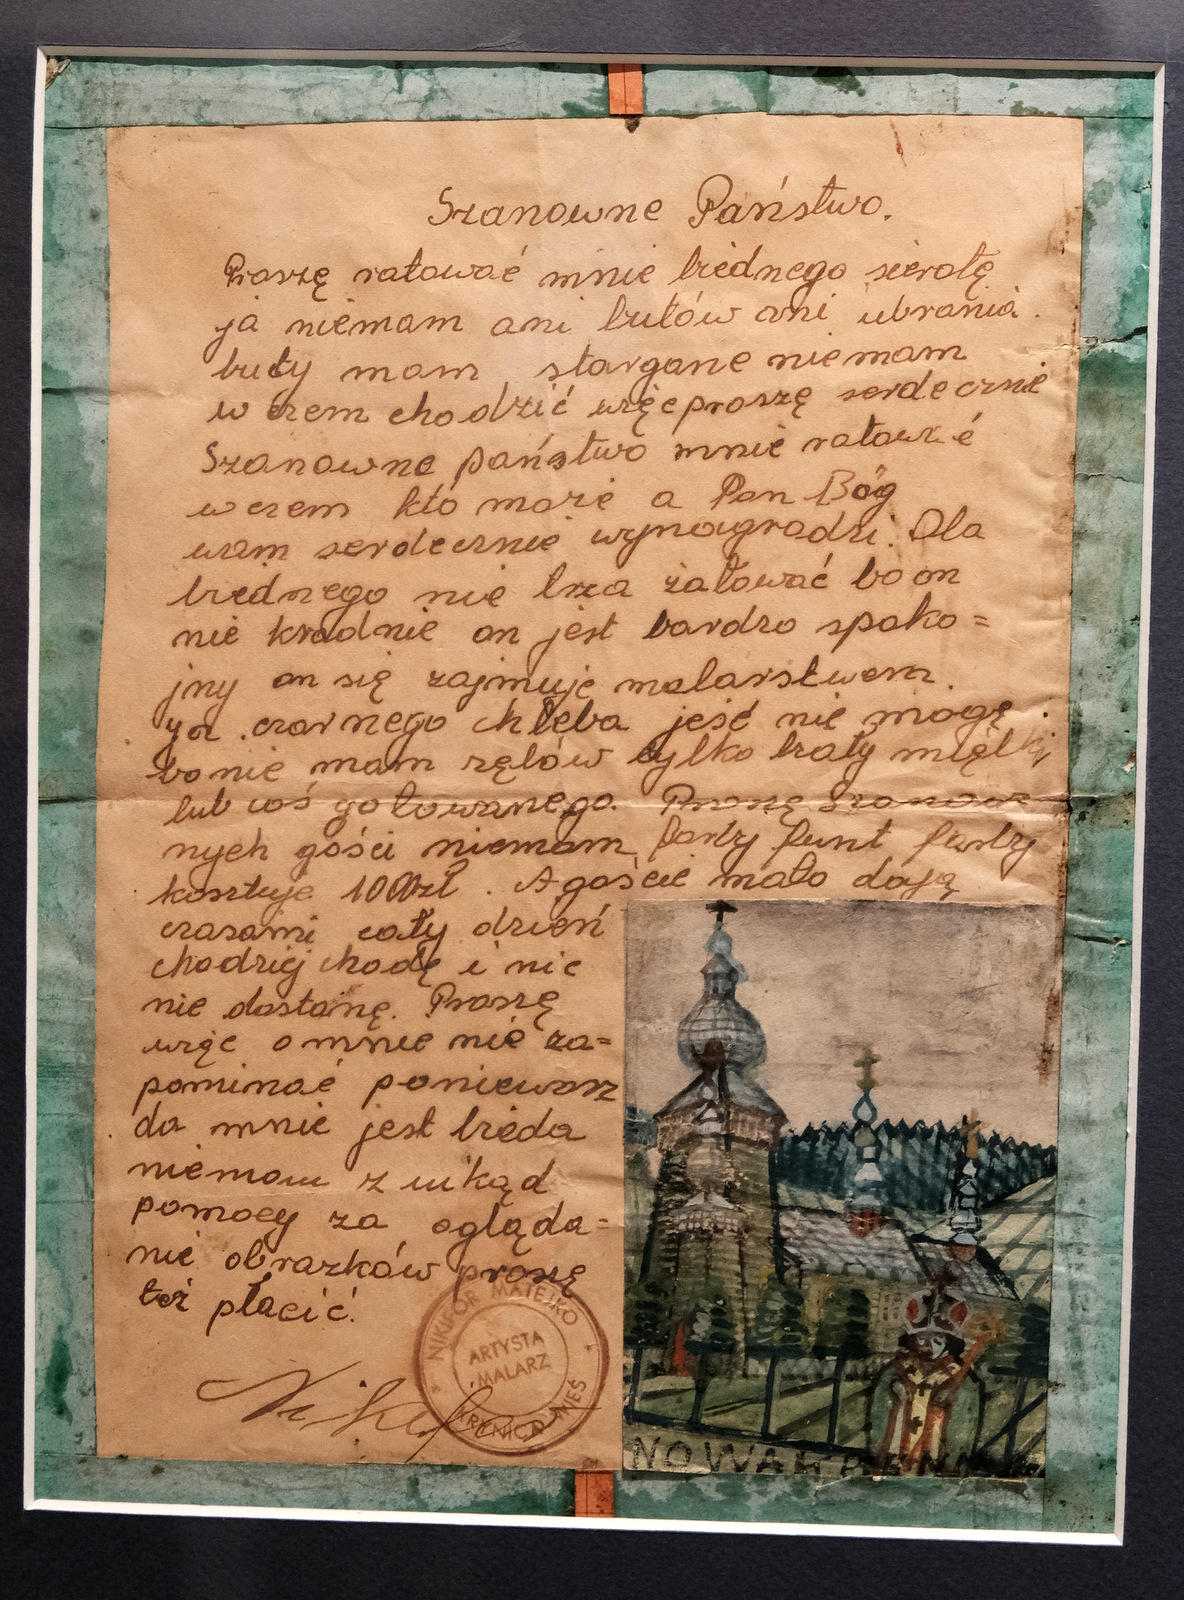 Szanowne Państwo.
Proszę ratować mnie biednego sierotę
ja niemam ani butów ani ubrania.
buty mam stargane niemam
w czem chodzić więc proszę serdecznie
Szanowne państwo mnie ratować
w czem kto może a Pan Bóg
wam serdecznie wynagrodzi. Dla
biednego nie trza żałować bo on
nie kradnie on jest bardzo spoko=
jny on się zajmuje malarstwem.
ja czarnego chleba jeść nie mogę
bo nie mam zębów tylko biały miętki,
lub coś gotowanego. Proszę Szanow
nych gości niemam farby funt farby
kosztuje 100zł. A goście mało dają
czasami cały dzień
chodzię chodę i nic
nie dostanę. Proszę
więc o mnie nie za=
pominać poniewasz
do mnie jest bieda
niemam z nikąd
pomocy za ogląda=
nie obrazków proszę
też płacić.
Nikifor
NIKIFOR MATEJKO
ARTYSTA
MALARZ
KRYNICA-WIEŚ